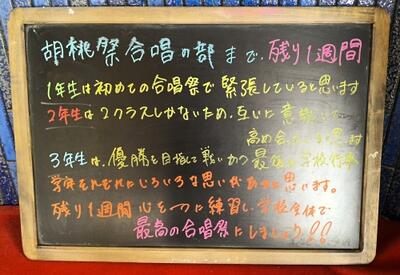 胡桃祭合唱の部まで、残り1週間
1年生は初めての合唱祭で緊張していると思います
2年生は2クラスしかないため、互いに意識し
高め合っていると思います
3年生は、優勝を目指して戦いかつ最後の学校行事
学年それぞれにいろいろな思いがあると思います。
残り1週間心を一つに練習し、学校全体で
最高の合唱祭にしましょう!!